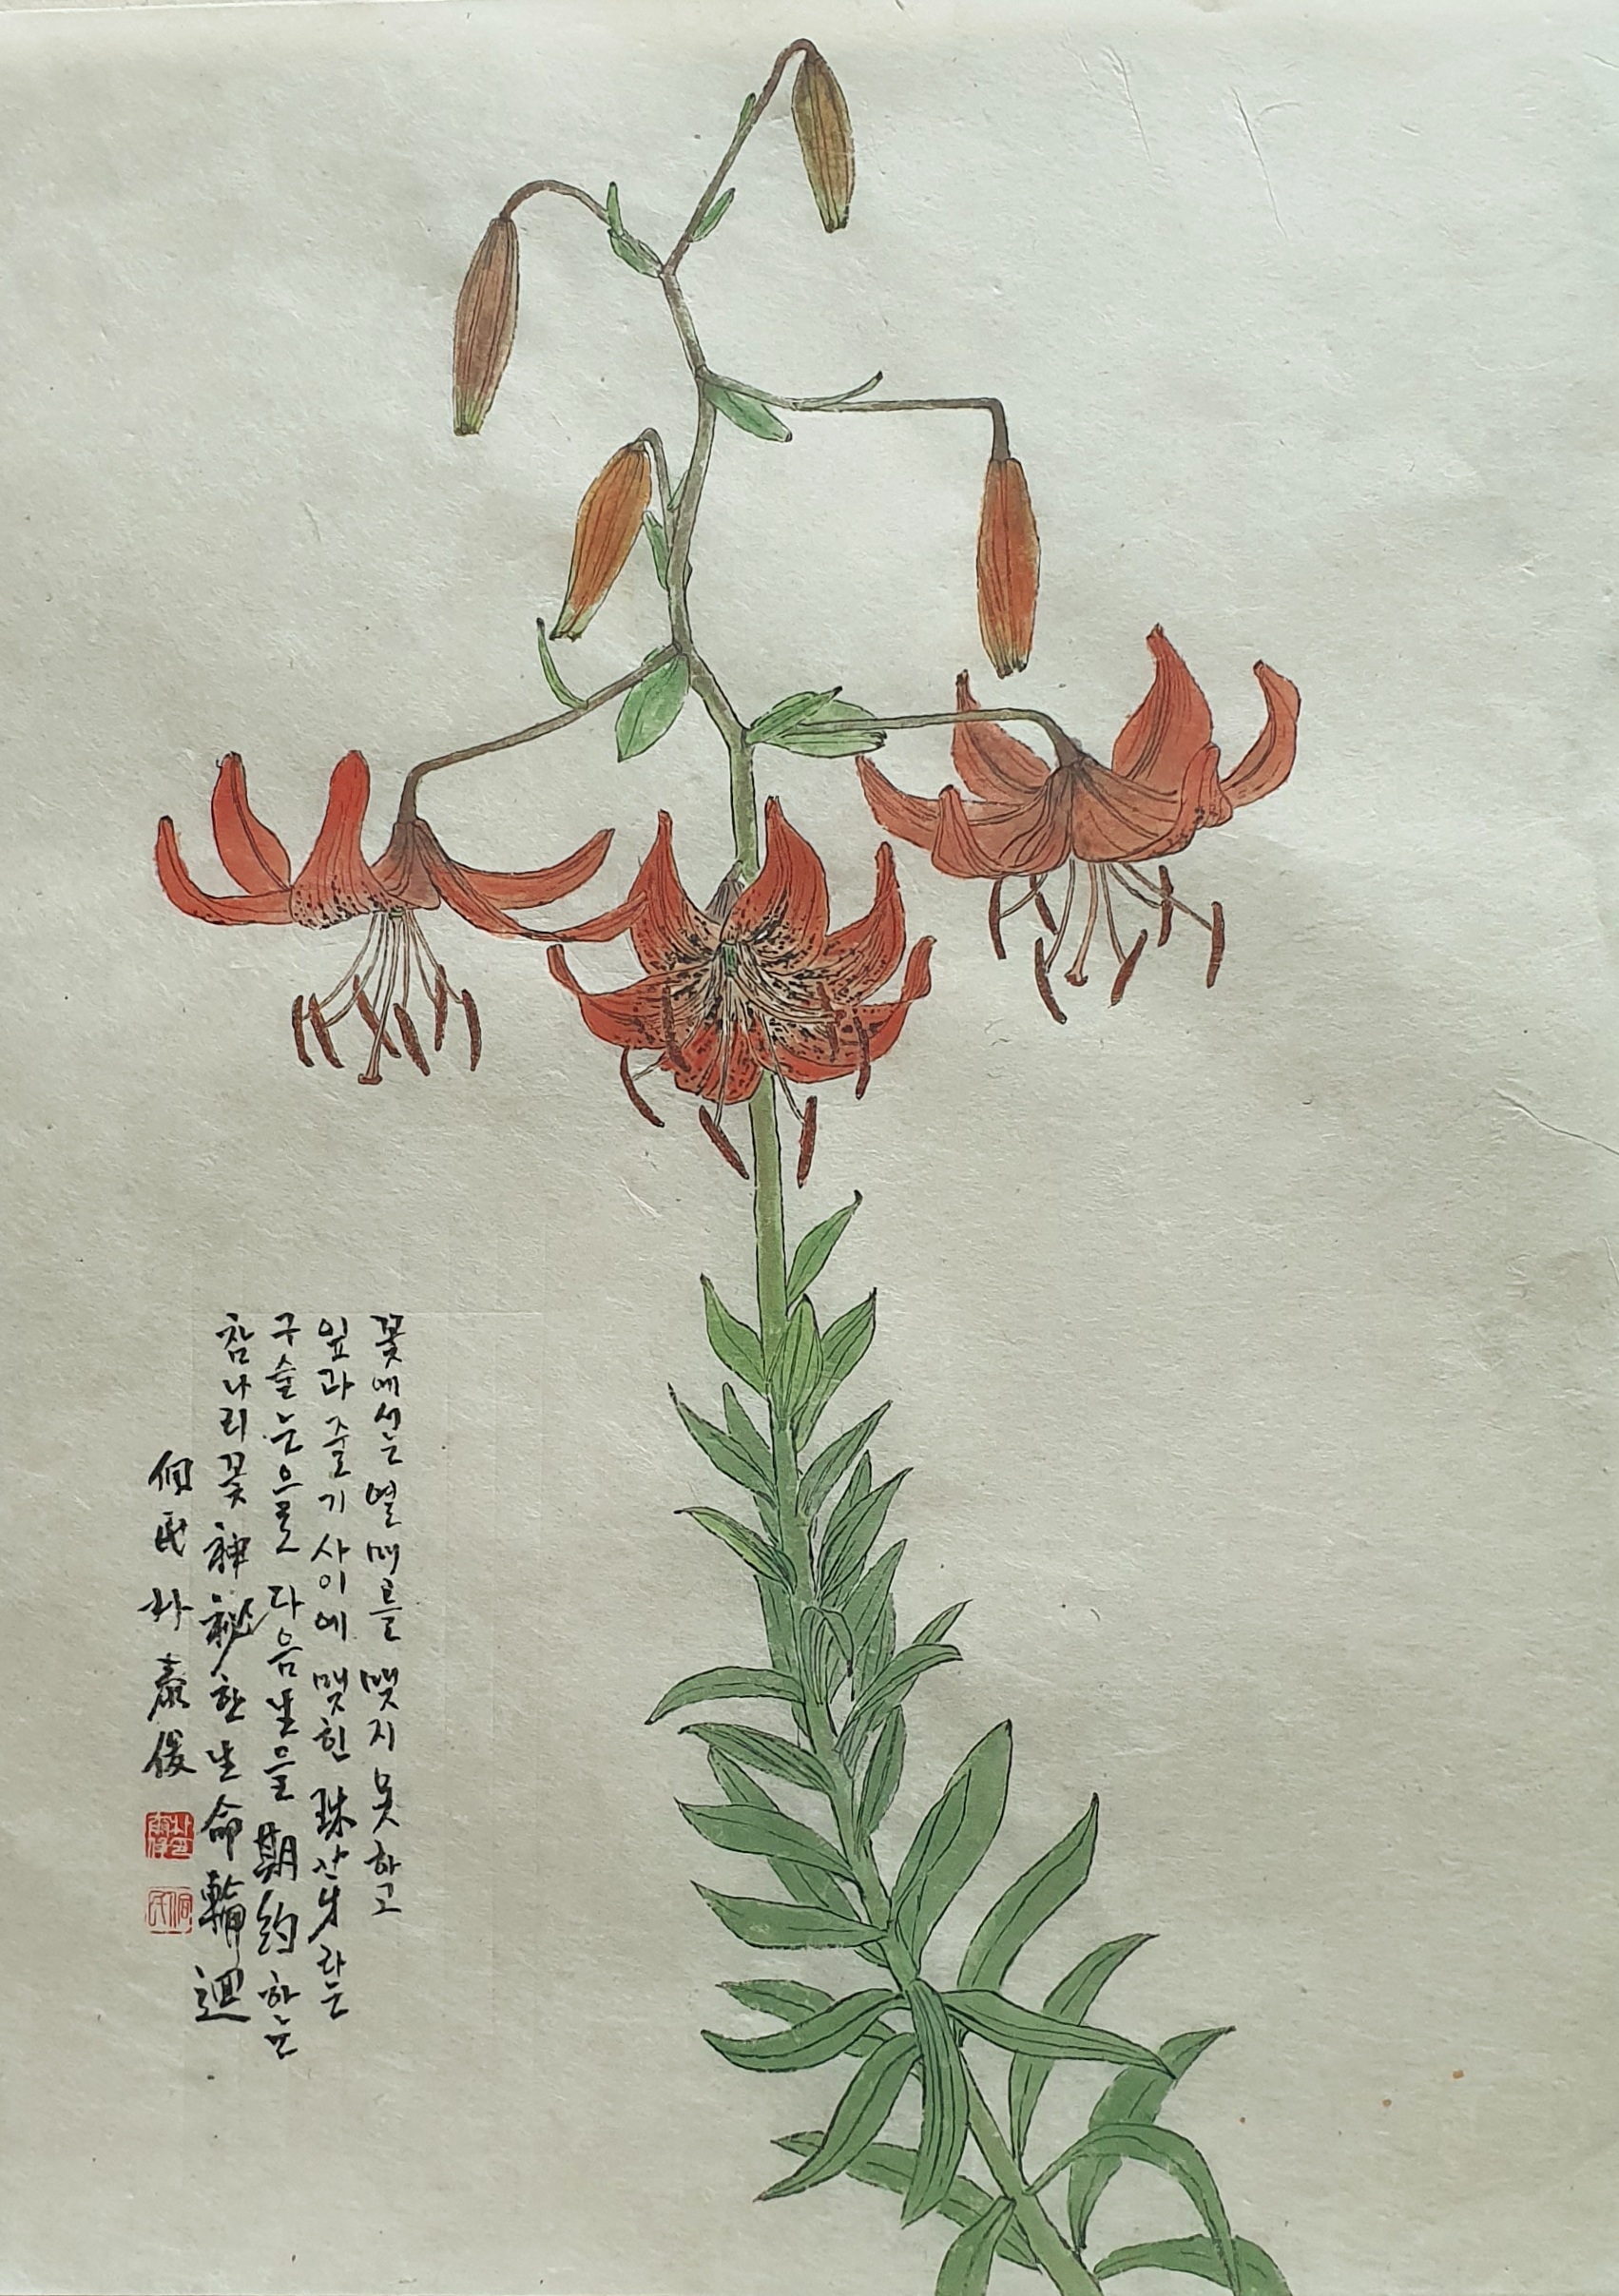 꽃에서는 열매를 맺지 못하고
잎과 줄기 사이에 맺힌 珠芽라는
구슬눈으로 다음 生을 期約하는
참나리꽃 神秘한 生命 輪廻
民 朴泰俊